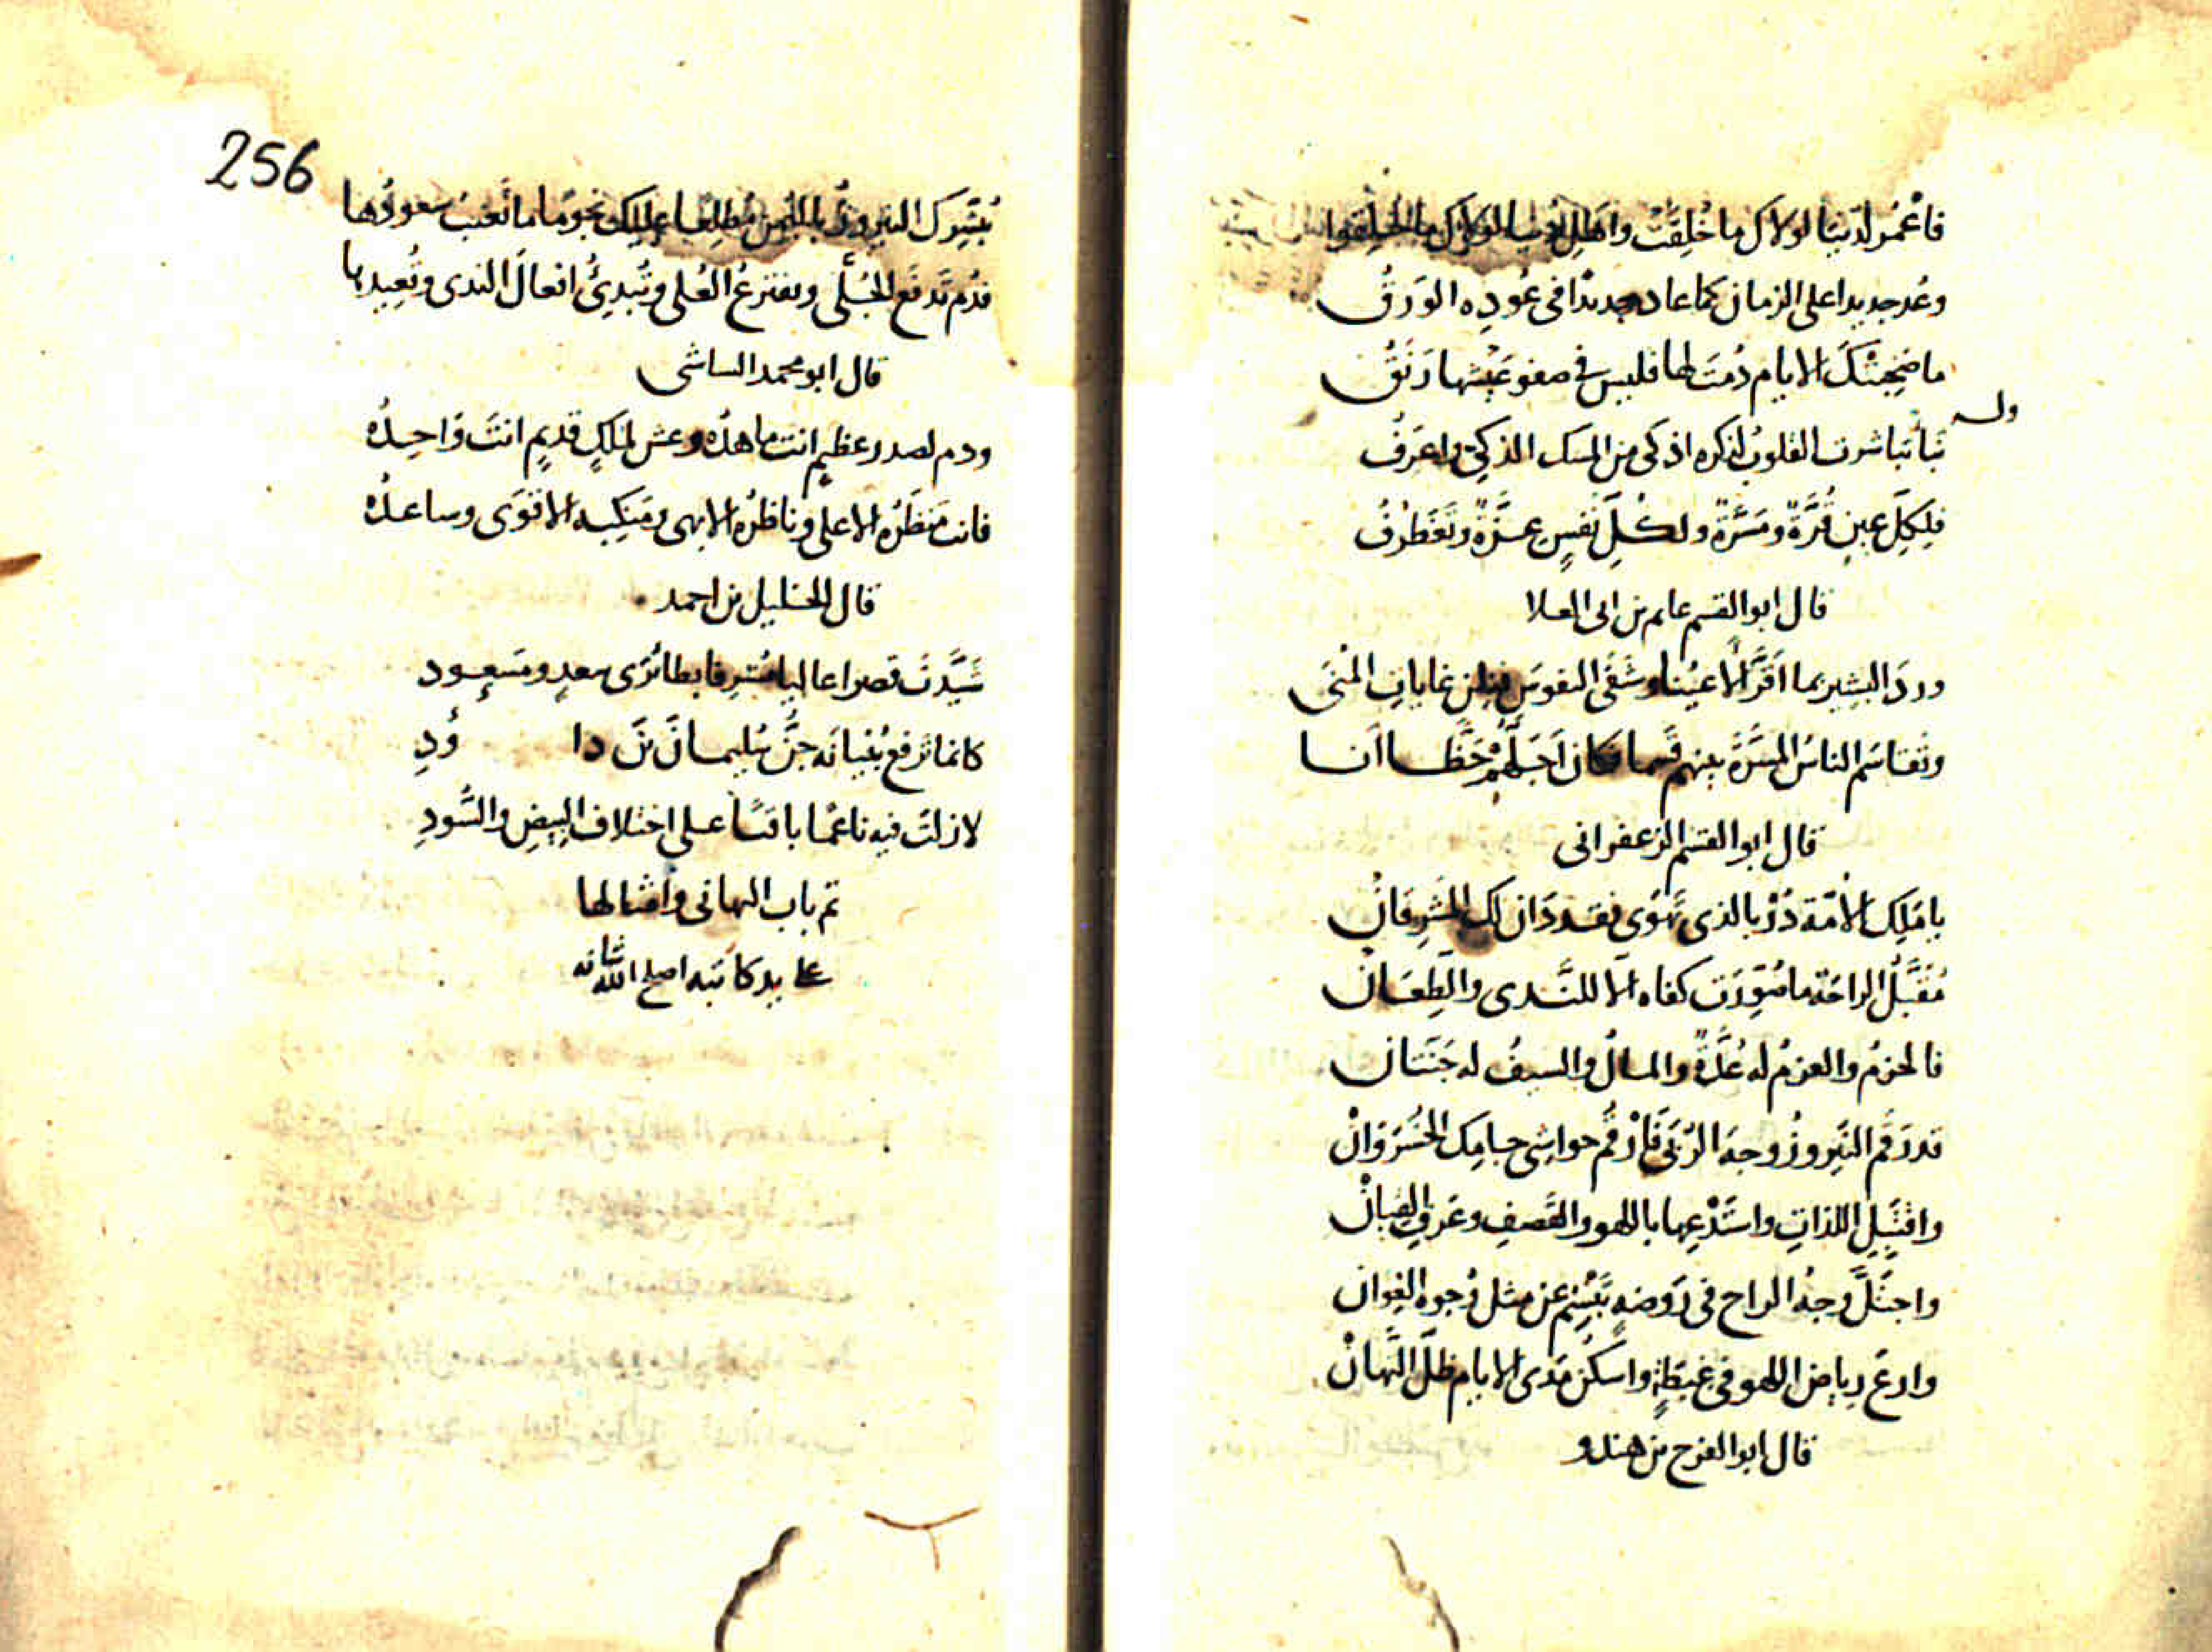 فاعْمُر لدنيا لولاك ما خُلِقَتْ واهل دنيا لولاك ما خلقوا
وعُد جديدا على الزمان كما عاد جديدًا فى عُودِه الورقُ
ما ضحِكتْ لك الايام دُمتَ لها فليس فى صفو عَيْشها رَنَقُ
وله
نبأ تباشرت القلوب لذكره اذكى من المسك الذكىّ واعرَفُ
فلِكلّ عينٍ قُرَّةٌ ومَسَرَّةٌ ولكلِّ نفسٍ عِزَّةٌ وتغَطرُفُ
قال ابو القسم غانم بن ابى العلا
وردَ البشير بما اَقَرَّ الاعيُنا وشَفَى النفوسَ فنلن غاياتِ المُنَى
وتقاسَم الناسُ المسَرَّةَ بينهم قسما فكان اَجَلَّهُمْ حَظّا اَنا
قال ابو القسم الزعفرانى
يا مَلِك الامّة دُرْ بالذى تهوَى فقد دَان لك المشرِقانْ
مُقَبَّلُ الراحَة ما صُوِّرَت كفاه الا للنَّدى والطِعانْ
فالحزمُ والعزمُ له عُدَّةٌ والمالُ والسيفُ له جَنَتانْ
قد رَقَم النَيروزُ وجهَ الرُبَى فازقُم حواشى جامِك الخُسْرَوَانْ
واقتَبِل اللذاتِ واستَدْعِها باللهو والقَصفِ وعَزفِ القِيانْ
واجتَلِ وجهَ الراح فى رَوضةٍ تَبْسِم عن مثل وُجوه الغَوانْ
وارعَ رِياض اللهو فى غبطةٍ واسكُن مَدى الايام ظلَّ التَهانْ
قال ابو الفرج بن هندو
256
يُبَشِّرك النيروزُ باليُمن مُطلِعا عليك نجومًا ما تَغيبُ سعودُها
فدُم تَدفَع الجُلَّى وتفترعُ العُلى وتُبدِئُ افعالَ الندى وتُعيدها
قال ابو محمد الساشى
ودم لصدر عظيم انت ما هدُه وعش لملكٍ قديمٍ انتَ وَاحِدُه
فانت مَنظَرُه الاعلى وناظرُه الابهى ومَنكِبه الاقوَى وساعدُه
قال الخليل بن احمد
شَيَّدتَ قصرا عاليا مُشرِفا بطائرَى سعدٍ ومَسعودِ
كانما ترفع بُنيانَه جنُّ سُليمانَ بنَ داوُدِ
لا زلتَ فيه ناعمًا باقيًا على اختلاف البيضِ والسُّودِ
تم باب التهانى وامثالها
على يد كاتبه اصلح الله شانه